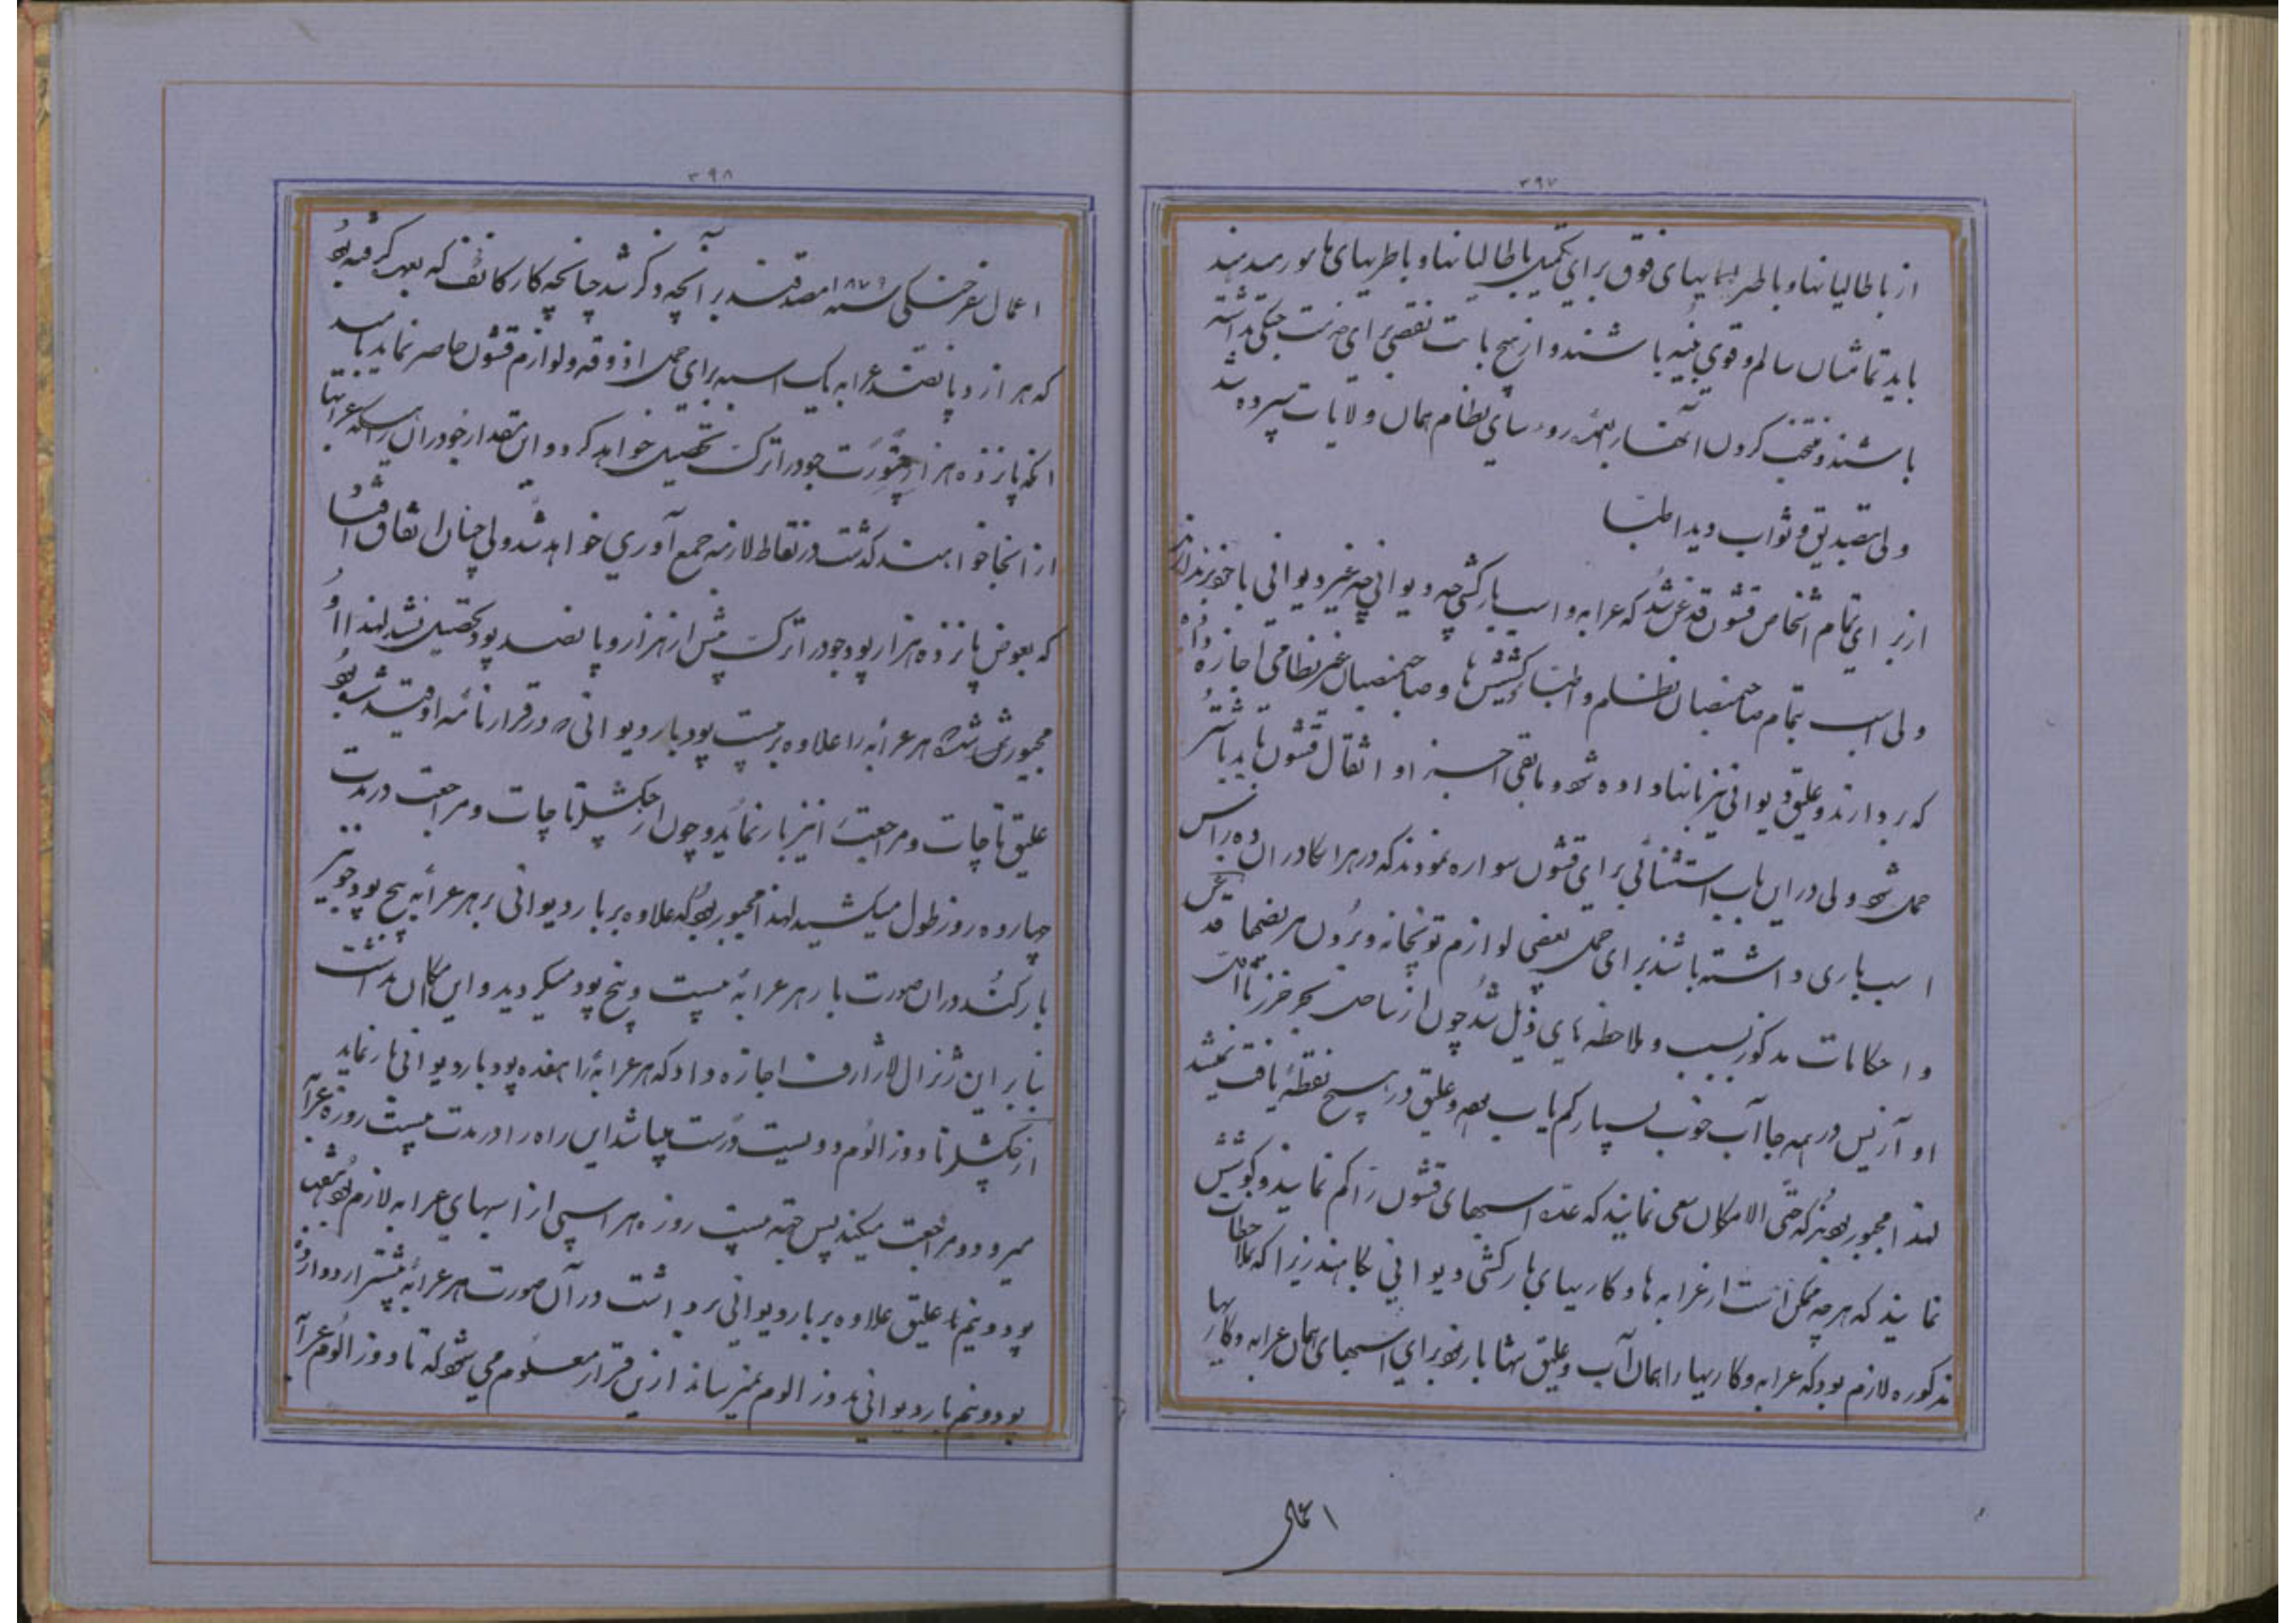 ۳۹۷
از باطالیانها و باطریهای فوق برای تکمیل باطالیانها و باطریهای مأمور رسیدند
باید تماشان سالم و قوی بنیه باشند و از هیچ بابت نقصی برای خدمت جنگی نداشته
باشند و منتخب کردن آنها بعهده رؤسای نظام همان ولایات سپرده شد
ولی بتصدیق و ثواب دید اطبا
از برای تمام اشخاص قشون قدغن شد که عرابه و اسب بارکشی چه دیوانی چه غیر دیوانی با خود برندارند
ولی اسب بتمام صاحبمنصبان نظام و اطبا و کشیش ها و صاحبمنصبان غیر نظامی اجازه داده
که بردارند و علیق دیوانی نیز بانها داده شود و مابقی احمال و اثقال قشون باید با شتر
حمل شود ولی در این باب استثنائی برای قشون سواره نمودند که در هر اسکادران ده رأس
اسب باری داشته باشند برای حمل بعضی لوازم توپخانه و بردن مریضها قدغن
و احکامات مذکور بسبب و ملاحظه های ذیل شد چون از ساحل بحر خزر تا
او آزیس در همه جا آب خوب بسیار کم یاب بود و علیق در هیچ نقطه یافت نمیشد
لهذا مجبور بودند که حتی الامکان سعی نمایند که عده اسبهای قشون را کم نمایند و کوشش
نمایند که هر چه ممکن است از عرابه ها و کاریهای بارکشی دیوانی بکاهند زیرا که بملاحظات
مذکوره لازم بود که عرابه و کاریها را همان آب و علیق تنها بار شود برای اسبهای همان عرابه و کاریها
اعمال
۳۹۸
اعمال سفر جنگی سنه ۱۸۷۹ مصدقند بر آنچه ذکر شد چنانچه کارکانف که بعهده گرفته بود
که هزار و پانصد عرابه یک اسبه برای حمل آذوقه و لوازم قشون حاضر نماید بامید
آنکه پانزده هزار چتورت جو در اترک تحصیل خواهد کرد و این مقدار جو در آن راه که عرابها
از آنجا خواهند گذشت در نقاط لازمه جمع آوری خواهد شد ولی چنان اتفاق افتاد
که بعوض پانزده هزار پود جو در اترک بیش از هزار و پانصد پود تحصیل نشد لهذا او
مجبور شد که هر عرابه را علاوه بر بیست پود بار دیوانی که در قرارنامه او قید شده بود
علیق تا چات و مراجعت را نیز بار نماید و چون از چکشلر تا چات و مراجعت در مدت
چهارده روز طول میکشید لهذا مجبور بود که علاوه بر بار دیوانی بر هر عرابه پنج پود جو نیز
بار کند در آن صورت بار هر عرابه بیست و پنج پود میگردید و این امکان نداشت
بنابراین ژنرال لازارف اجازه داد که هر عرابه را هفده پود بار دیوانی بار نماید
از چکشلر تا دوزالوم دویست ورست میباشد این راه را در مدت بیست روز عرابه
میرود و مراجعت میکند پس جهة بیست روزه هر اسبی از اسبهای عرابه لازم بود
پود و نیم بار علیق علاوه بر بار دیوانی برداشت در آن صورت هر عرابه بیشتر از دوازده
پود و نیم بار دیوانی بدوزالوم نمیرساند ازین قرار معلوم می شود که تا دوزالوم عرابه